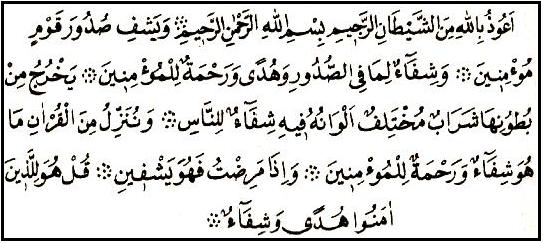 اَعُوذُ بِاللهِ مِنَ الشَّيْطَانِ الرَّجِيمِ بِسْمِ اللهِ الرَّحْمٰنِ الرَّحِيمِ ۞ وَيَشْفِ صُدُورَ قَوْمٍ
مُوءْمِنِينَ ۞ وَشِفَاۤءٌ لِمَا فِى الصُّدُورِ وَهُدًى وَرَحْمَةٌ لِلْمُوءْمِنِينَ ۞ يَخْرُجُ مِنْ
بُطُونِهَا شَرَابٌ مُخْتَلِفٌ اَلْوَانُهُ فِيهِ شِفَاۤءٌ لِلنَّاسِ ۞ وَنُنَزِّلُ مِنَ الْقُرْاٰنِ مَا
هُوَ شِفَاۤءٌ وَرَحْمَةٌ لِلْمُوءْمِنِينَ ۞ وَاِذَا مَرِضْتُ فَهُوَ يَشْفِينِ ۞ قُلْ هُوَ لِلَّذِينَ
اٰمَنُوا هُدًى وَشِفَاۤءٌ ۞